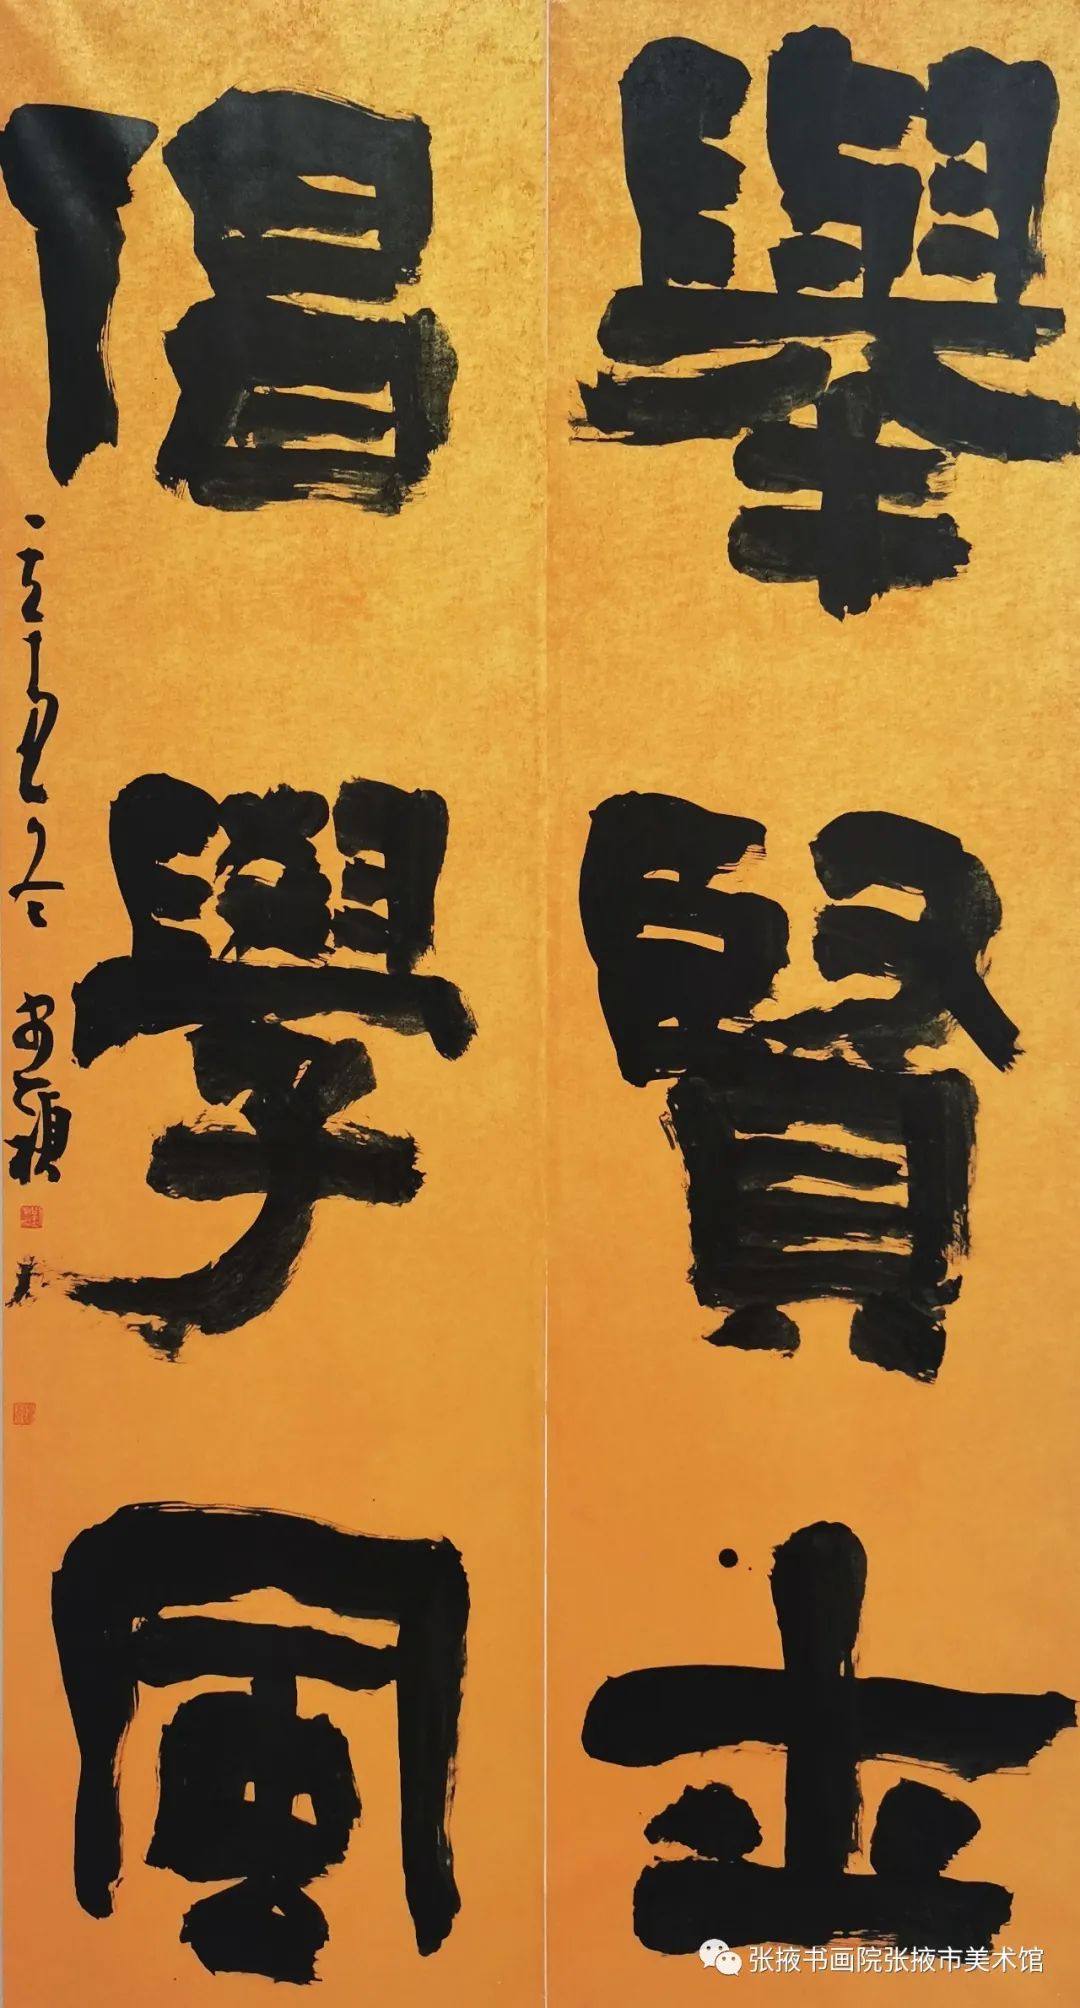 舉賢士
倡學風
张掖书画院张掖市美术馆